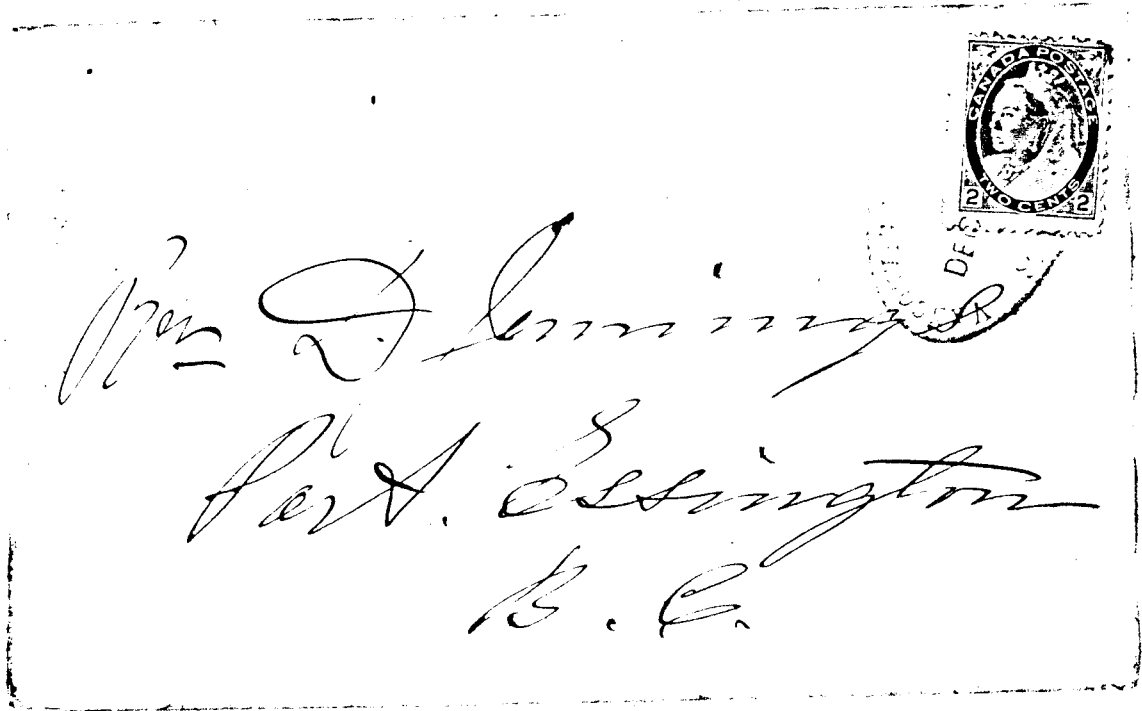 CANADA POSTAGE
TWO CENTS
2 2
DE
Rev D. Jennings
Port. Essington
B. C.